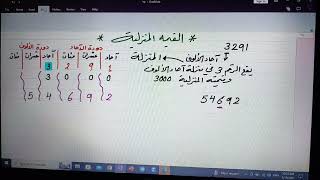 * القيمة المنزلية *
3291
المنزلة آحاد الألوف
يقع الرقم 3 في منزلة آحاد الألوف
وقيمته المنزلية 3000
54692
دورة الآحاد دورة الألوف
آحاد عشرات مئات آحاد عشرات مئات
1 9 2 3
0 0 0 3
2 9 6 4 5